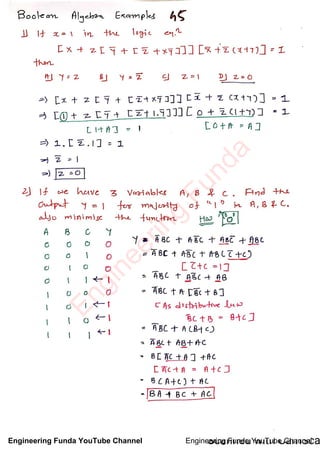 Boolean Algebra Examples 45
1) If x = 1 in the logic eqn.
[x + z [ȳ + [z̄ + xȳ]]] [x̄ + z̄ (x+y)] = 1
then
A] y = z B] y = z̄ C] z = 1 D] z = 0
⇒ [x + z [ȳ + [z̄ + xȳ]]] [x̄ + z̄ (x+y)] = 1
⇒ [① + z [ȳ + [z̄ + 1.ȳ]]] [0 + z̄ (1+y)] = 1
[1+A] = 1 [0+A = A]
⇒ 1. [z̄ .1] = 1
⇒ z̄ = 1
⇒ z = 0
2) If we have 3 variables A, B & C. Find the
output y = 1 for majority of "1" in A, B & C.
also minimize the function. HW "0"
A B C Y
0 0 0 0
0 0 1 0
0 1 0 0
0 1 1 ← 1
1 0 0 0
1 0 1 ← 1
1 1 0 ← 1
1 1 1 ← 1
Y = ĀBC + AB̄C + ABC̄ + ABC
= ĀBC + AB̄C + AB(C̄+C)
[C̄+C = 1]
= ĀBC + AB̄C + AB
= ĀBC + A [B̄C + B]
[As distributive law
B̄C + B = B+C]
= ĀBC + A(B+C)
= ĀBC + AB + AC
= B[ĀC + A] + AC
[ĀC + A = A+C]
= B(A+C) + AC
= BA + BC + AC
Engineering Funda
Engineering Funda YouTube Channel
Engineering Funda YouTube Channel